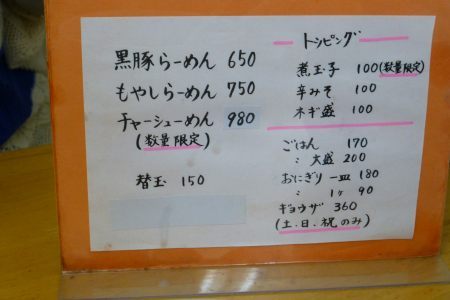 黒豚らーめん 650
もやしらーめん 750
チャーシューめん 980
(数量限定)
替玉 150
トッピング
煮玉子 100(数量限定)
辛みそ 100
ネギ盛 100
ごはん 170
〃 大盛 200
おにぎり 一皿 180
〃 1ヶ 90
ギョウザ 360
(土、日、祝のみ)